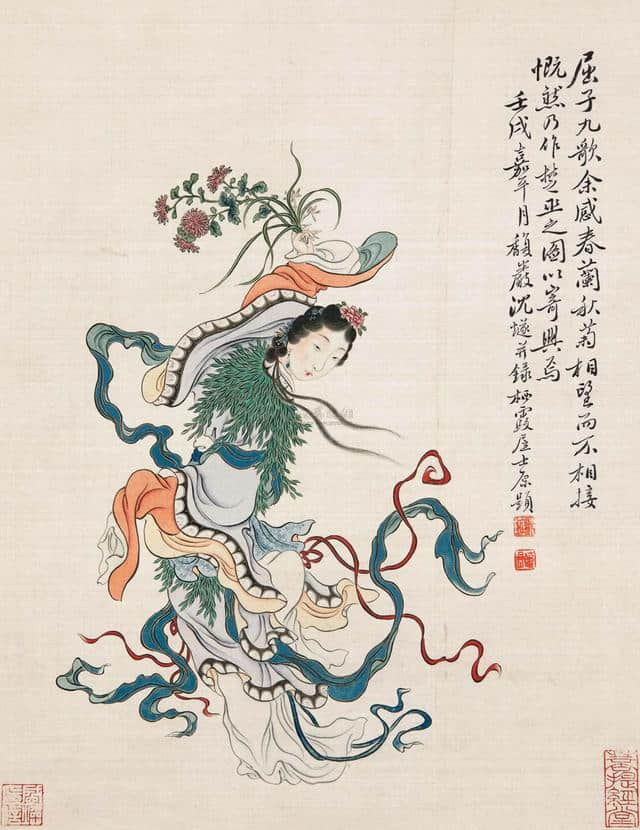 屈子九歌余感春蘭秋菊相望而不相接
慨然乃作楚巫之圖以寄興焉
壬戌嘉平月馥巖沈燧并錄栖霞居士原題